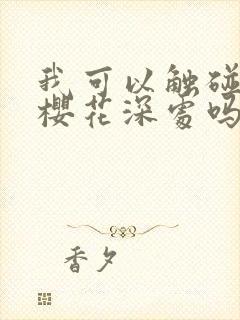 我可以触碰
樱花深处吗
香夕